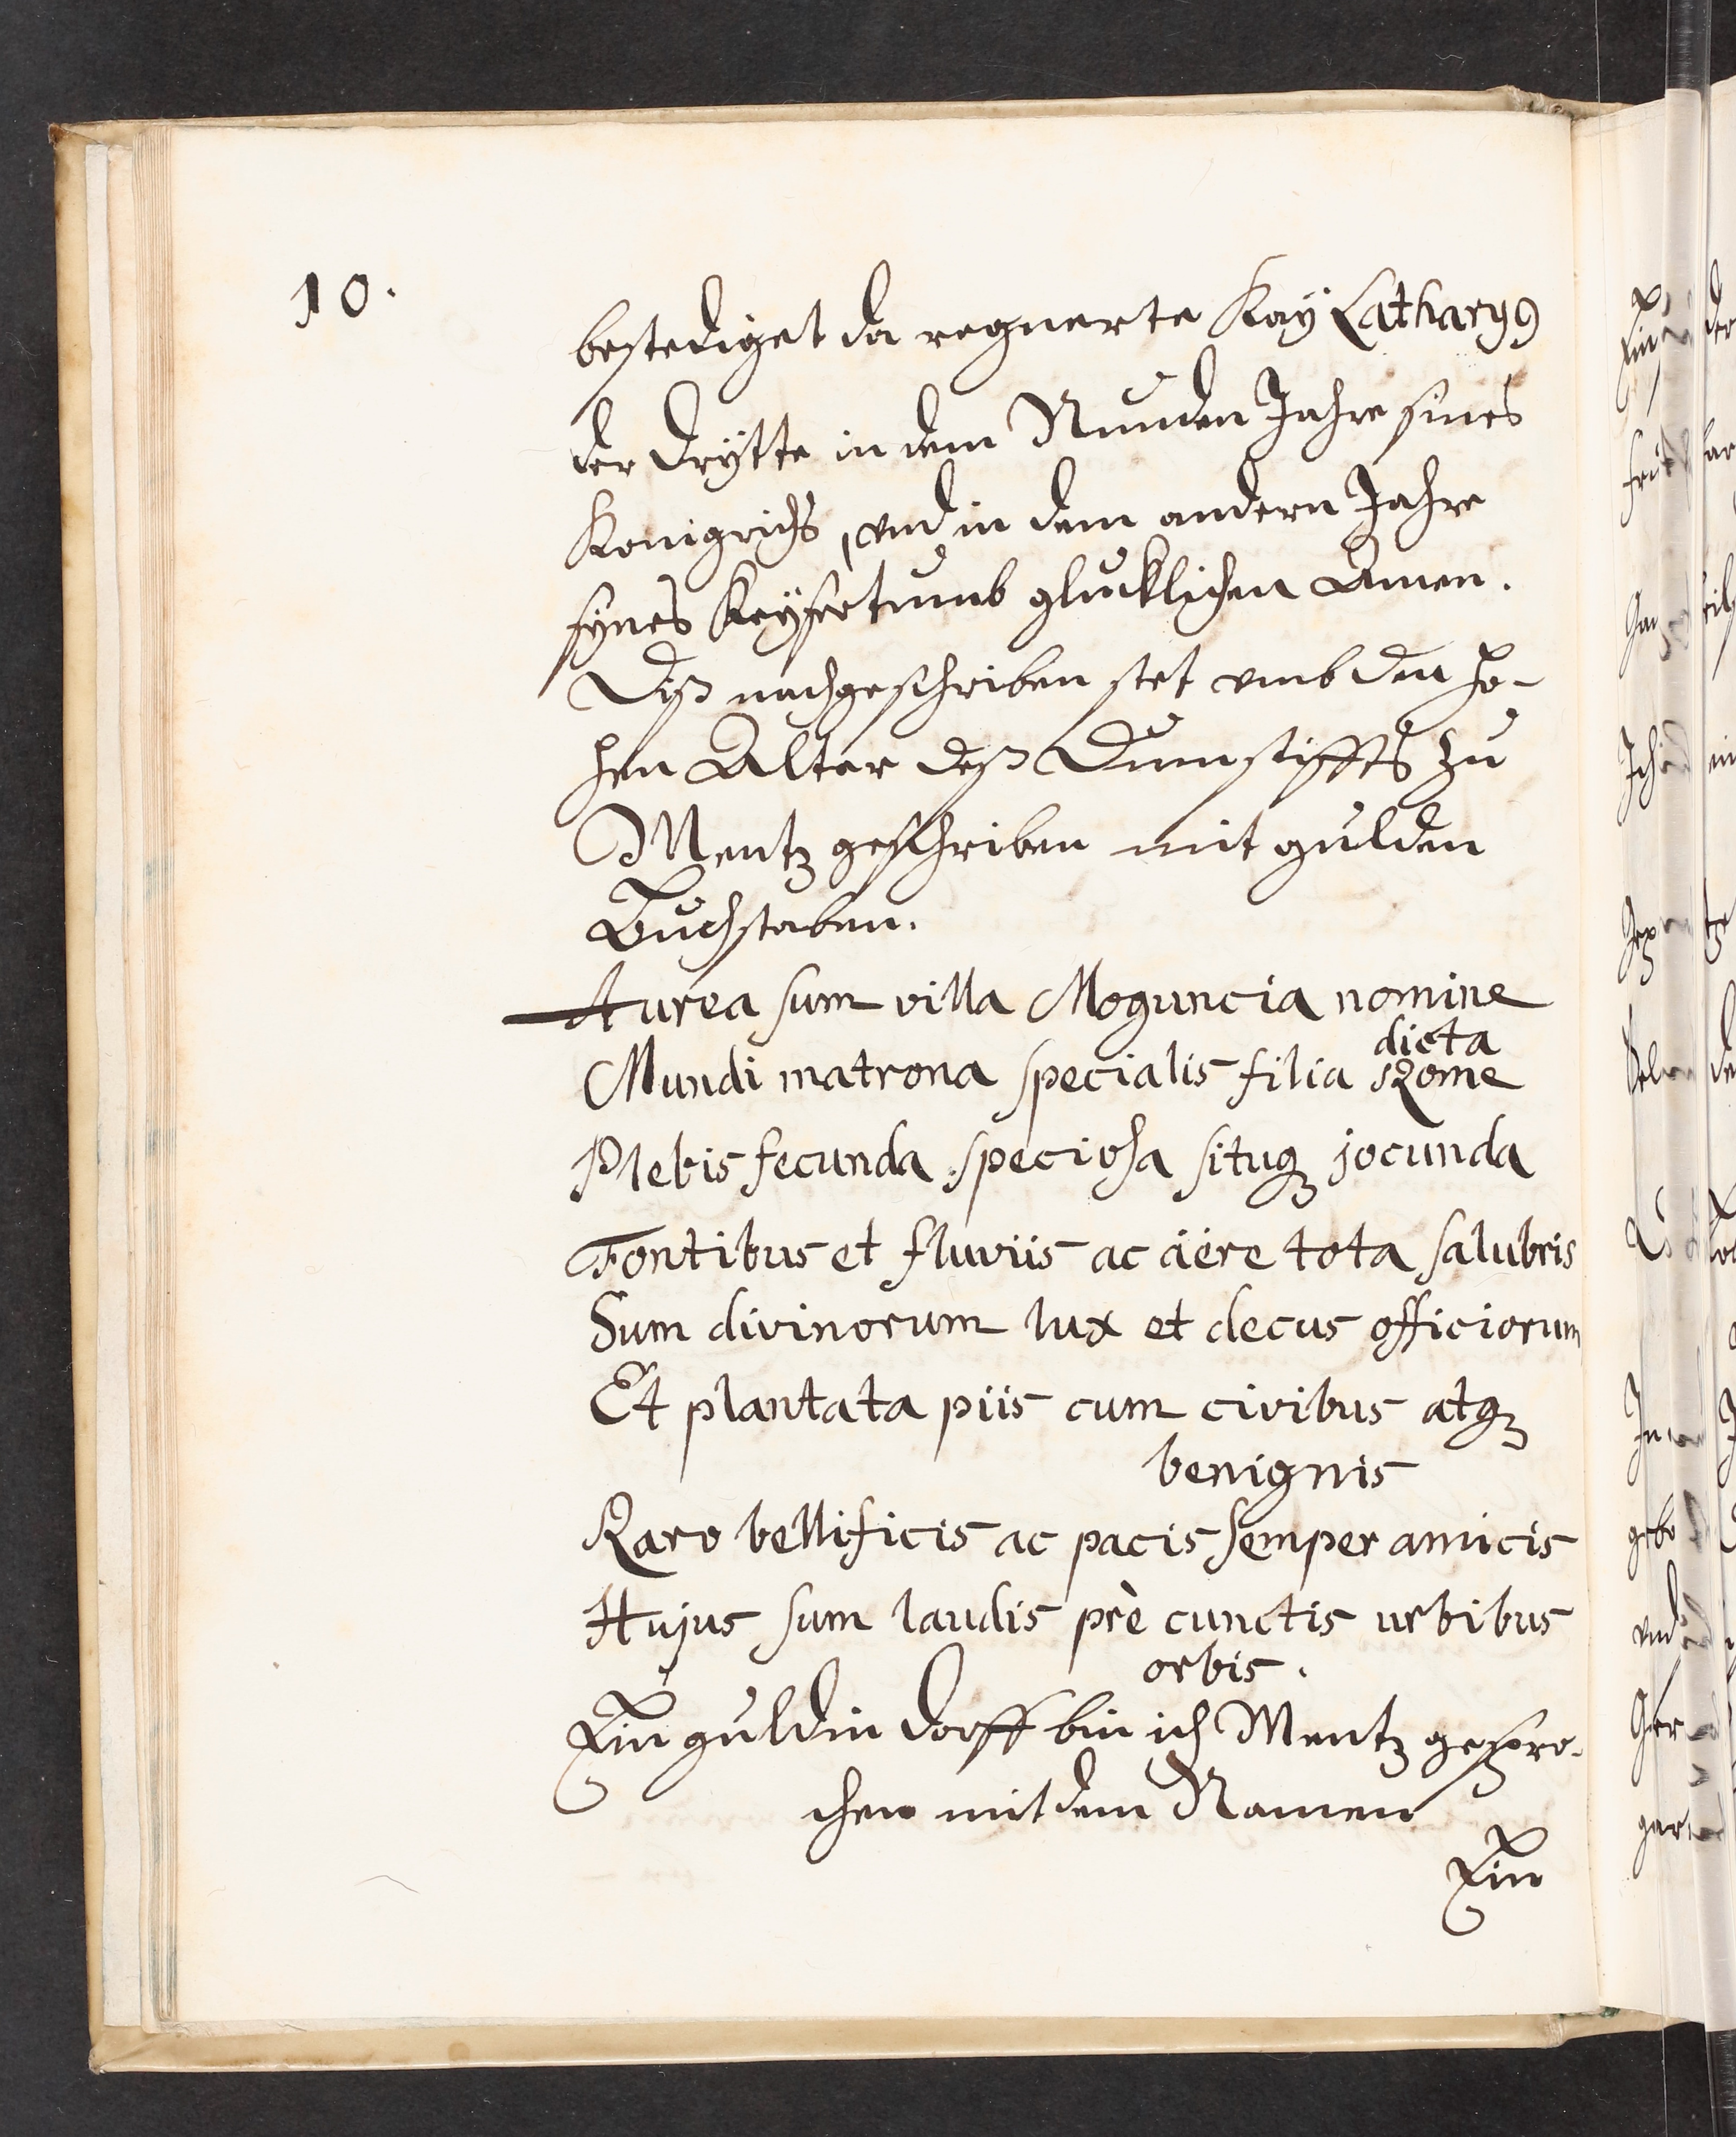 10.
bestediget da regnerte Kay Lotharyꝰ
der Drÿtte in dem Nunden Jahre sines
Konigrichs, vnd in dem andern Jahre
synes Keyßertumb glucklichen Amen.
Diß nachgeschriben stet vmb den ho-
hen Altar deß Dumstiffts zu
Mentz geschriben mit gulden
Buchstaben.
Aurea sum villa Moguncia nomine
dicta
Mundi matrona specialis filia Rome
Plebis fecunda speciosa situqꝫ jocunda
Fontibus et fluviis ac aëre tota salubris
Sum divinorum lux et decus officiorum
Et plantata piis cum civibus atqꝫ
benignis
Raro bellificis ac pacis semper amicis
Hujus sum laudis prè cunctis urbibus
orbis.
Ein guldin dorff bin ich Mentz gespro-
chen mit dem Namen
Ein